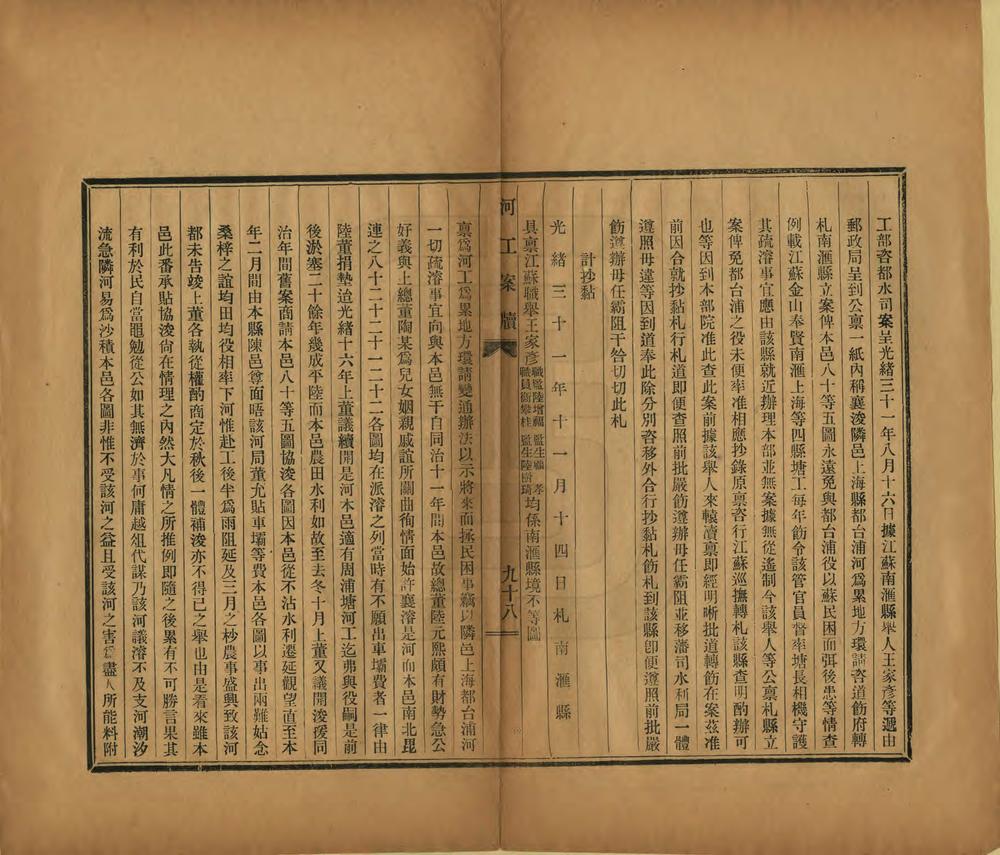 工部咨都水司案呈光緒三十一年八月十六日據江蘇南滙縣舉人王家彥等遞由
郵政局呈到公禀一紙內稱襄浚隣邑上海縣都台浦河爲累地方環請咨道飭府轉
札南滙縣立案俾本邑八十等五圖永遠免與都台浦役以蘇民困而弭後患等情查
例載江蘇金山奉賢南滙上海等四縣塘工每年飭令該管官員督率塘長相機守護
其疏濬事宜應由該縣就近辦理本部並無案據無從遙制今該舉人等公禀札縣立
案俾免都台浦之役未便率准相應抄錄原禀咨行江蘇巡撫轉札該縣查明酌辦可
也等因到本部院准此查此案前據該舉人來轅瀆禀即經明晰批道轉飭在案茲准
前因合就抄黏札行札道即便查照前批嚴飭遵辦毋任霸阻並移藩司水利局一體
遵照毋違等因到道奉此除分別咨移外合行抄黏札飭札到該縣即便遵照前批嚴
飭遵辦毋任霸阻干咎切切此札
計抄黏
光緒三十一年十一月十四日札南滙縣
具禀江蘇職舉王家彥職監陸增福職員衞攀桂監生孝監生陸樹琦均係南滙縣境不等圖
河工案牘 九十八
禀爲河工爲累地方環請變通辦法以示將來而拯民困事竊以隣邑上海都台浦河
一切疏濬事宜向與本邑無干自同治十一年間本邑故總董陸元熙頗有財勢急公
好義與上總董陶某爲兒女姻親戚誼所關曲徇情面始許襄濬是河而本邑南北毘
連之八十二十二十一二十二各圖均在派濬之列當時有不願出車壩費者一律由
陸董捐墊迨光緒十六年上董議續開是河本邑適有周浦塘河工迄弗與役嗣是前
後淤塞二十餘年幾成平陸而本邑農田水利如故至去冬十月上董又議開浚援同
治年間舊案商請本邑八十等五圖協浚各圖因本邑從不沾水利遷延觀望直至本
年二月間由本縣陳邑尊面晤該河局董允貼車壩等費本邑各圖以事出兩難姑念
桑梓之誼均田均役相率下河惟赴工後半爲雨阻延及三月之杪農事盛興致該河
都未告竣上董各執從權酌商定於秋後一體補浚亦不得已之舉也由是看來雖本
邑此番承貼協浚尙在情理之內然大凡情之所推例即隨之後累有不可勝言果其
有利於民自當黽勉從公如其無濟於事何庸越俎代謀乃該河議濬不及支河潮汐
流急隣河易爲沙積本邑各圖非惟不受該河之益且受該河之害爲盡人所能料附